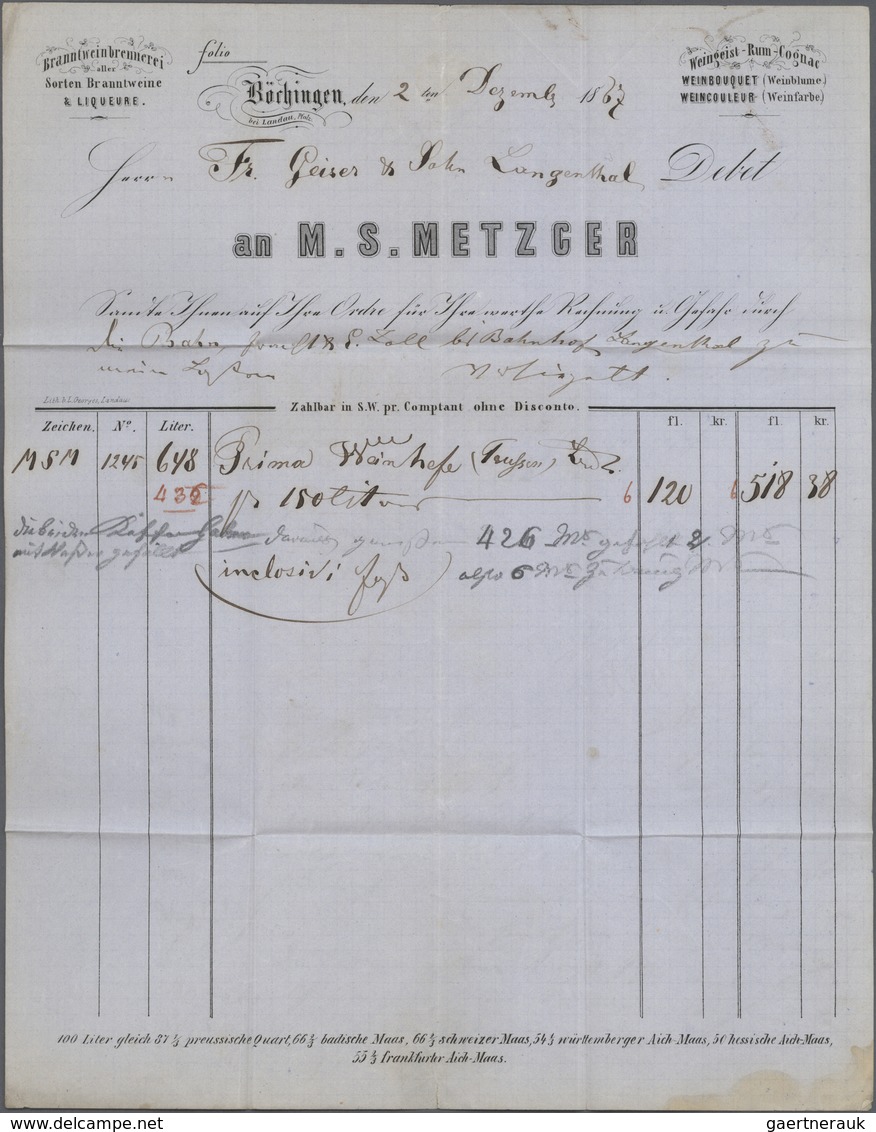 Branntweinbrennerei
aller
Sorten Branntweine
& LIQUEURE.
folio
Böchingen, den 2 ten Dezembr 1867
bei Landau, Pfalz.
Weingeist-Rum-Cognac
WEINBOUQUET (Weinblume)
WEINCOULEUR (Weinfarbe)
Herrn Fr. Geiser & Sohn Langenthal, Debet
an M. S. METZGER
Sandte Ihnen auf Ihre Ordre für Ihre werthe Rechnung u. Gefahr durch
die Bahn, Zoll bis Bahnhof Langenthal zu
Lith. b. L. Georges, Landau
Zahlbar in S.W. pr. Comptant ohne Disconto.
Zeichen. No. Liter. fl. kr. fl. kr.
MSM 1245 648 Prima Weinhefe (Trussen)
432 pr 150 Liter 6 120 6 518 38
die beiden
426
inclosivi Faß also 6
100 Liter gleich 87 1/3 preussische Quart, 66 2/3 badische Maas, 66 2/3 schweizer Maas, 54 1/2 württemberger Aich-Maas, 50 hessische Aich-Maas,
55 4/5 frankfurter Aich-Maas.
gaertnerauk